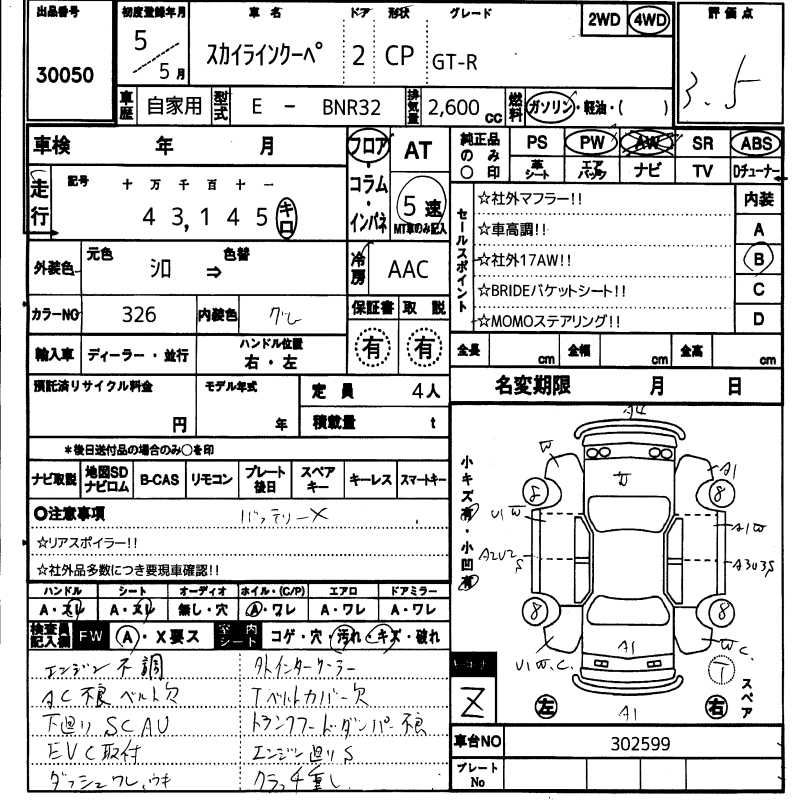 出品番号
30050
初度登録年月
5
5月
車名
スカイラインクーペ
ドア
2
形状
CP
グレード
GT-R
2WD 4WD
評価点
3.5
車歴
自家用
型式
E - BNR32
排気量
2,600cc
燃料
ガソリン・軽油・( )
車検 年 月
走行
記号 十 万 千 百 十 一
43,145 キロ
外装色
元色 色替
シロ ⇒
カラーNO
326
内装色
グレ
輸入車
ディーラー・並行
ハンドル位置
右・左
預託済リサイクル料金
円
モデル年式
年
フロア・コラム・インパネ
AT
5速
MT車のみ記入
冷房
AAC
保証書
有
取説
有
定員
4人
積載量
t
純正品のみ○印
PS PW AW SR ABS
革シート エアバック ナビ TV Dチューナー
セールスポイント
☆社外マフラー!!
☆車高調!!
☆社外17AW!!
☆BRIDEバケットシート!!
☆MOMOステアリング!!
内装
A
B
C
D
全長 cm 全幅 cm 全高 cm
名変期限 月 日
*後日送付品の場合のみ○を印
ナビ取説 地図SDナビロム B-CAS リモコン プレート後日 スペアキー キーレス スマートキー
◎注意事項
バッテリーX
☆リアスポイラー!!
☆社外品多数につき要現車確認!!
ハンドル シート オーディオ ホイル・(C/P) エアロ ドアミラー
A・スレ A・スレ 無し・穴 A・ワレ A・ワレ A・ワレ
検査員記入欄
FW
A・X要ス
内 シート
コゲ・穴・汚れ・キズ・破れ
エンジン不調
外インタークーラー
AC不良 ベルト欠
Tベルトカバー欠
下廻り SCAU
トランクフードダンパー不良
EVC取付
エンジン廻りS
ダッシュワレ、ウキ
クラッチ重し
小キズ有・小凹有
A4
W
A1
8
8
U1 W
A1W
A2U2S
A3U3S
8
8
U1W.C.
A1
W C.
T
スペア
左
A1
右
Z
車台NO
302599
プレートNo